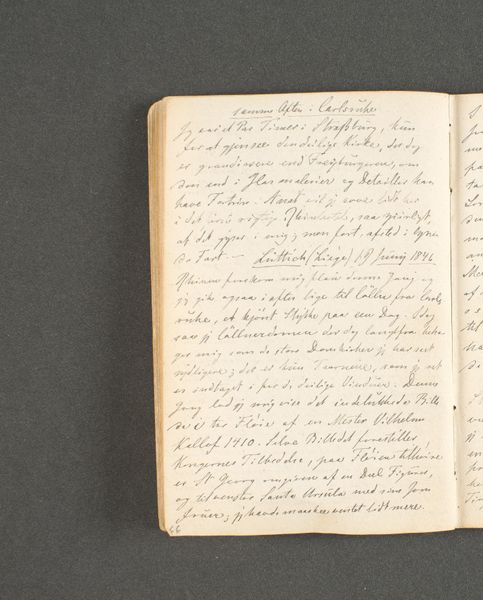 samme Aften i Carlsruhe
Jeg var et Par Timer i Straßburg, kun
for at gjensee den deilige Kirke, der dog
er grandiosere end Freiburgeren, om
den end i Glasmalerier og Detailler kan
have Fortrin. Næst vil jeg sove lidt her
i det rigtige saa
at det gyser i mig; men fort, afsted i
Fart. — Lüttich (Liége) 19 Junij 1846.
Rhinen forekom mig flau denne Gang og
jeg gik ogsaa i aften lige til Cölln fra Carls-
ruhe, et hjørnt Stykke paa een Dag. Idag
saae jeg Cöllnerdomen der dog langtfra beha-
ger mig som de store Domkirker jeg har seet
sydligere; det er kun Taarnene, som jeg ret
er indtaget i for de deilige Vinduer. Denne
Gang lod jeg mig vise det indelukkede Bille
de i tre Fløie af en Mester Vilhelm
Kallof 1410. Selve Billedet forestiller
Kongernes Tilbedelse, paa Fløien tilhøire
er St Georg omgiven af en Deel Figurer,
og tilvenstre Santa Ursula med sine Jom
fruer; jeg havde maaskee ventet lidt mere.
66